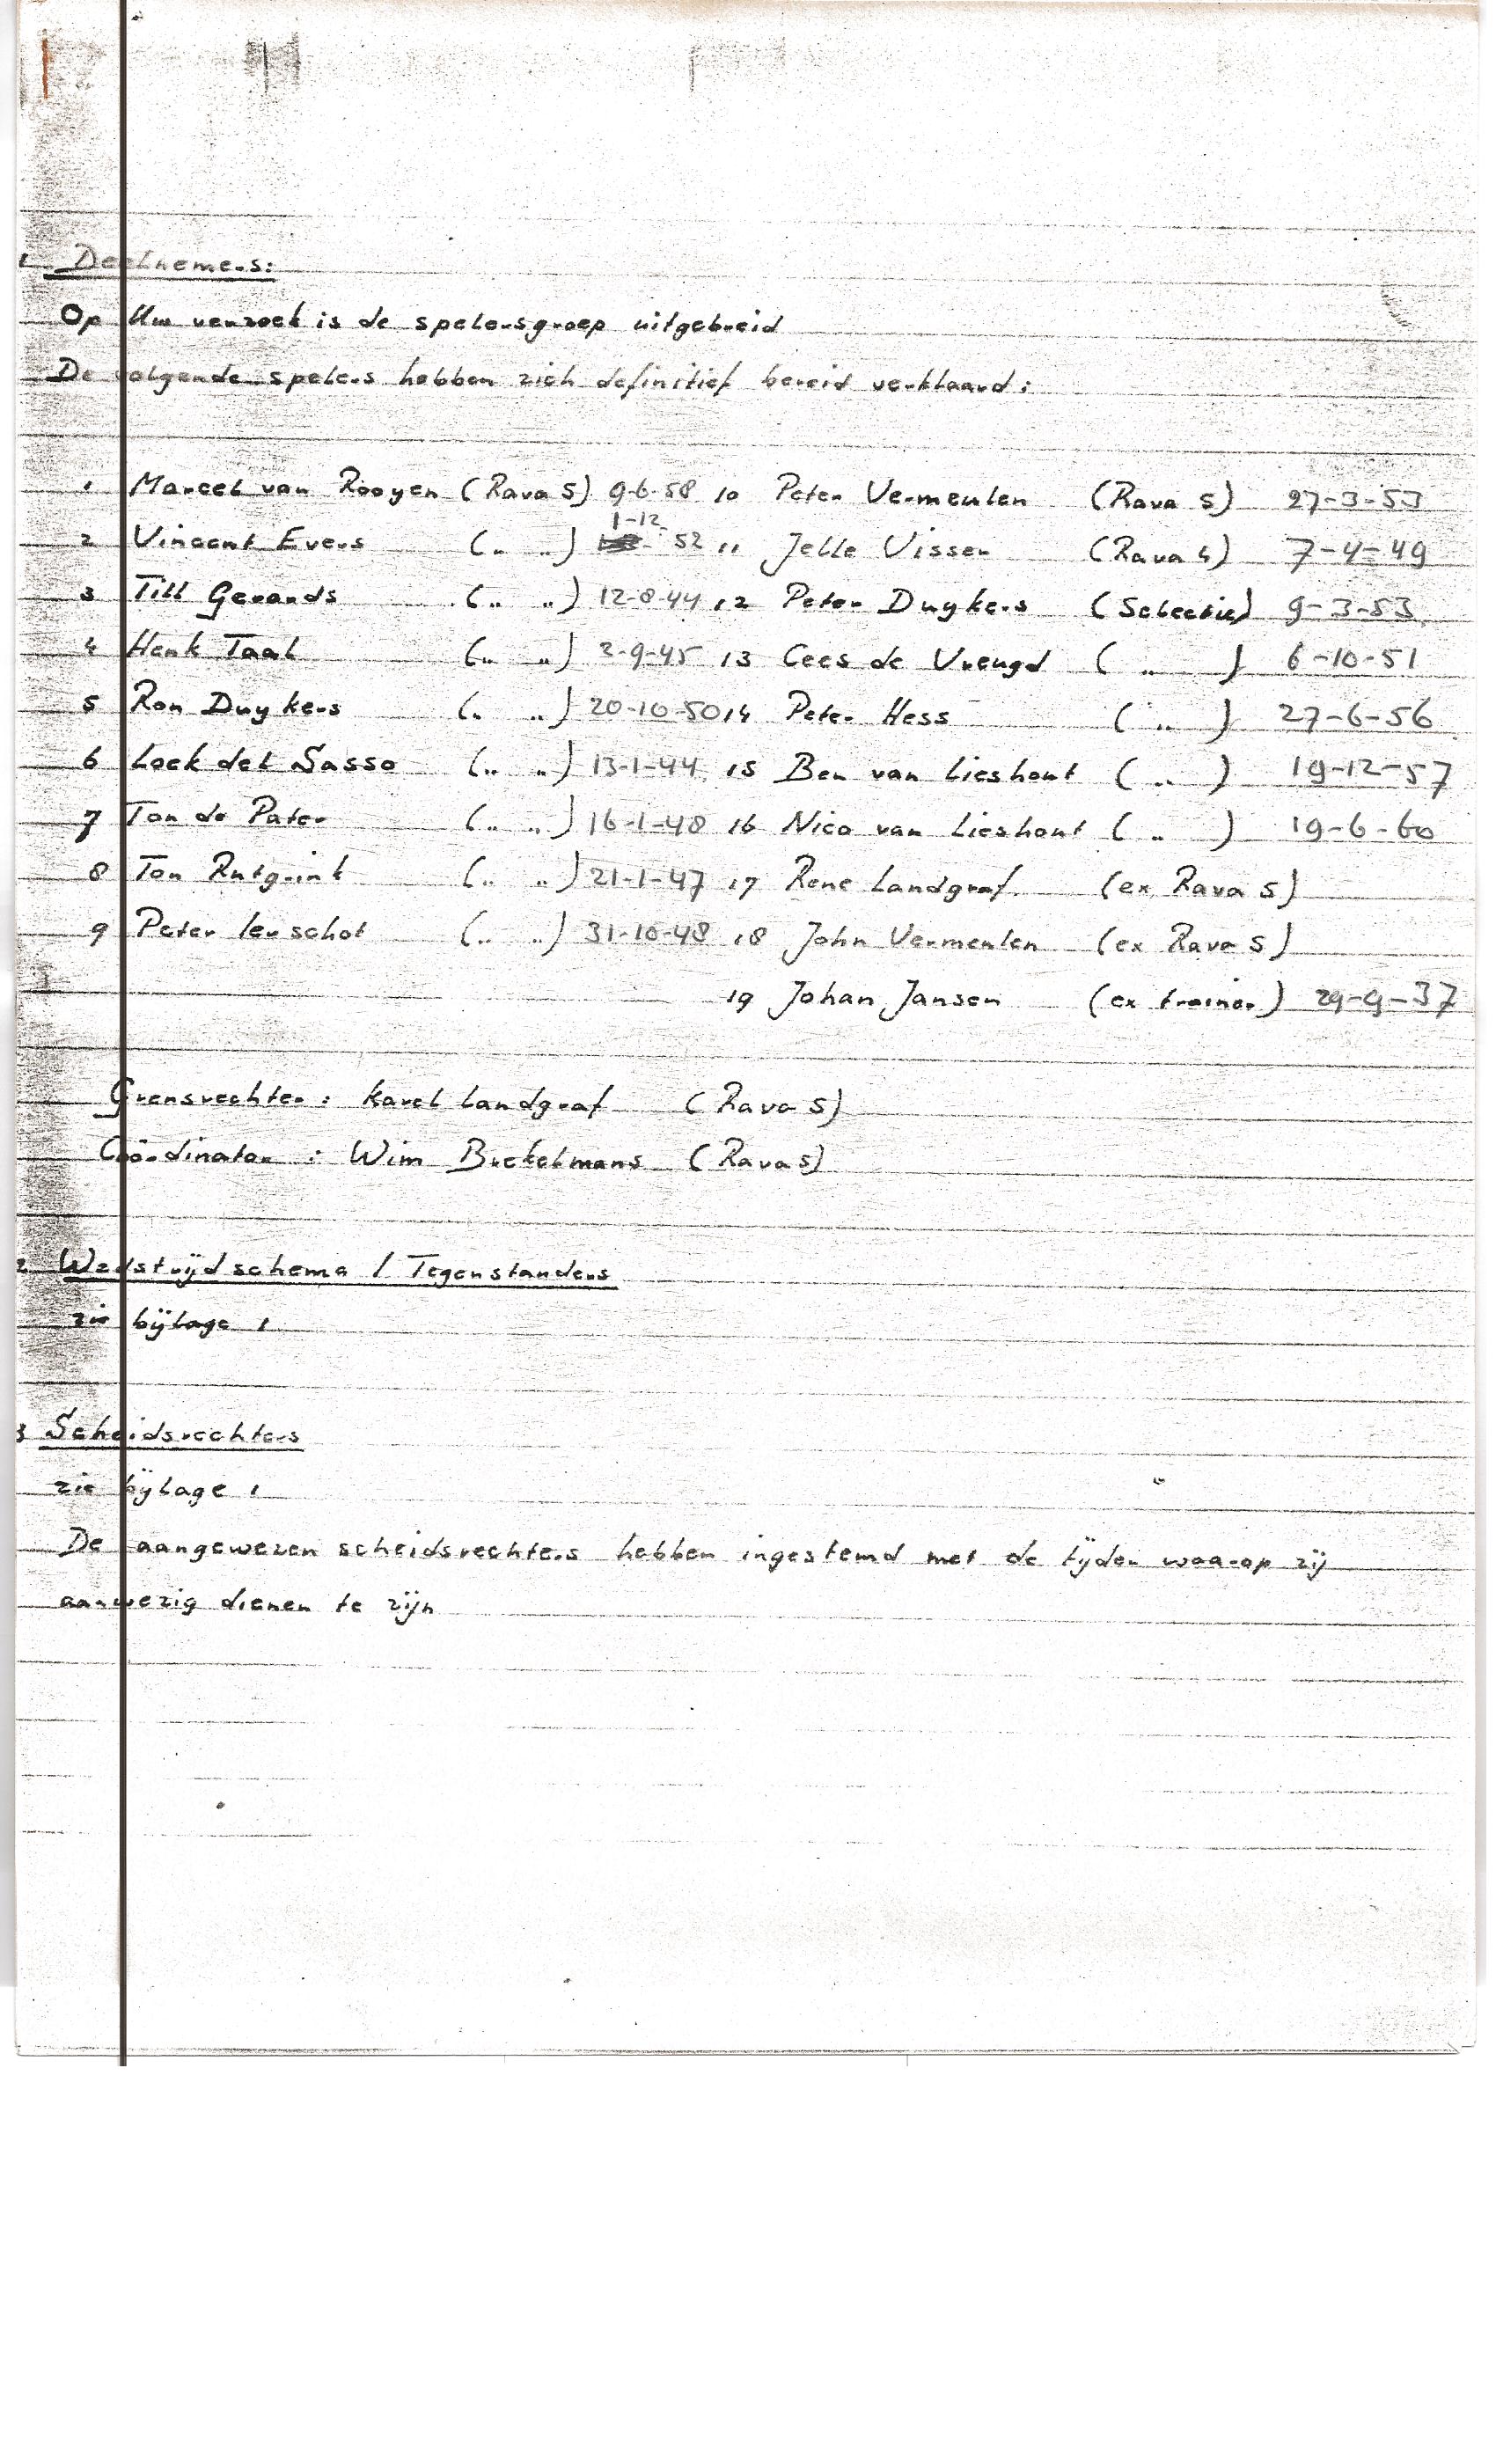 1 Deelnemers:
Op Uw verzoek is de spelersgroep uitgebreid
De volgende spelers hebben zich definitief bereid verklaard:
1 Marcel van Rooyen (Rava 5) 9-6-58 10 Peter Vermeulen (Rava 5) 27-3-53
1-12
2 Vincent Evers (.. ..) 52 11 Jelle Visser (Rava 4) 7-4-49
3 Till Gerards (.. ..) 12-8-44 12 Peter Duykers (Selectie) 9-3-53
4 Henk Taal (.. ..) 3-9-45 13 Cees de Vreugd ( .. ) 6-10-51
5 Ron Duykers (.. ..) 20-10-50 14 Peter Hess ( .. ) 27-6-56
6 Loek del Sasso (.. ..) 13-1-44 15 Ben van Lieshout ( .. ) 19-12-57
7 Ton de Pater (.. ..) 16-1-48 16 Nico van Lieshout ( .. ) 19-6-60
8 Ton Rutgrink (.. ..) 21-1-47 17 Rene Landgraf (ex Rava 5)
9 Peter Ierschot (.. ..) 31-10-48 18 John Vermeulen (ex Rava 5)
19 Johan Jansen (ex trainer) 29-9-37
Grensrechter: Karel Landgraf (Rava 5)
Coördinator : Wim Brekelmans (Rava 5)
2 Wedstrijdschema / Tegenstanders
zie bijlage 1
3 Scheidsrechters
zie bijlage 1
De aangewezen scheidsrechters hebben ingestemd met de tijden waarop zij
aanwezig dienen te zijn